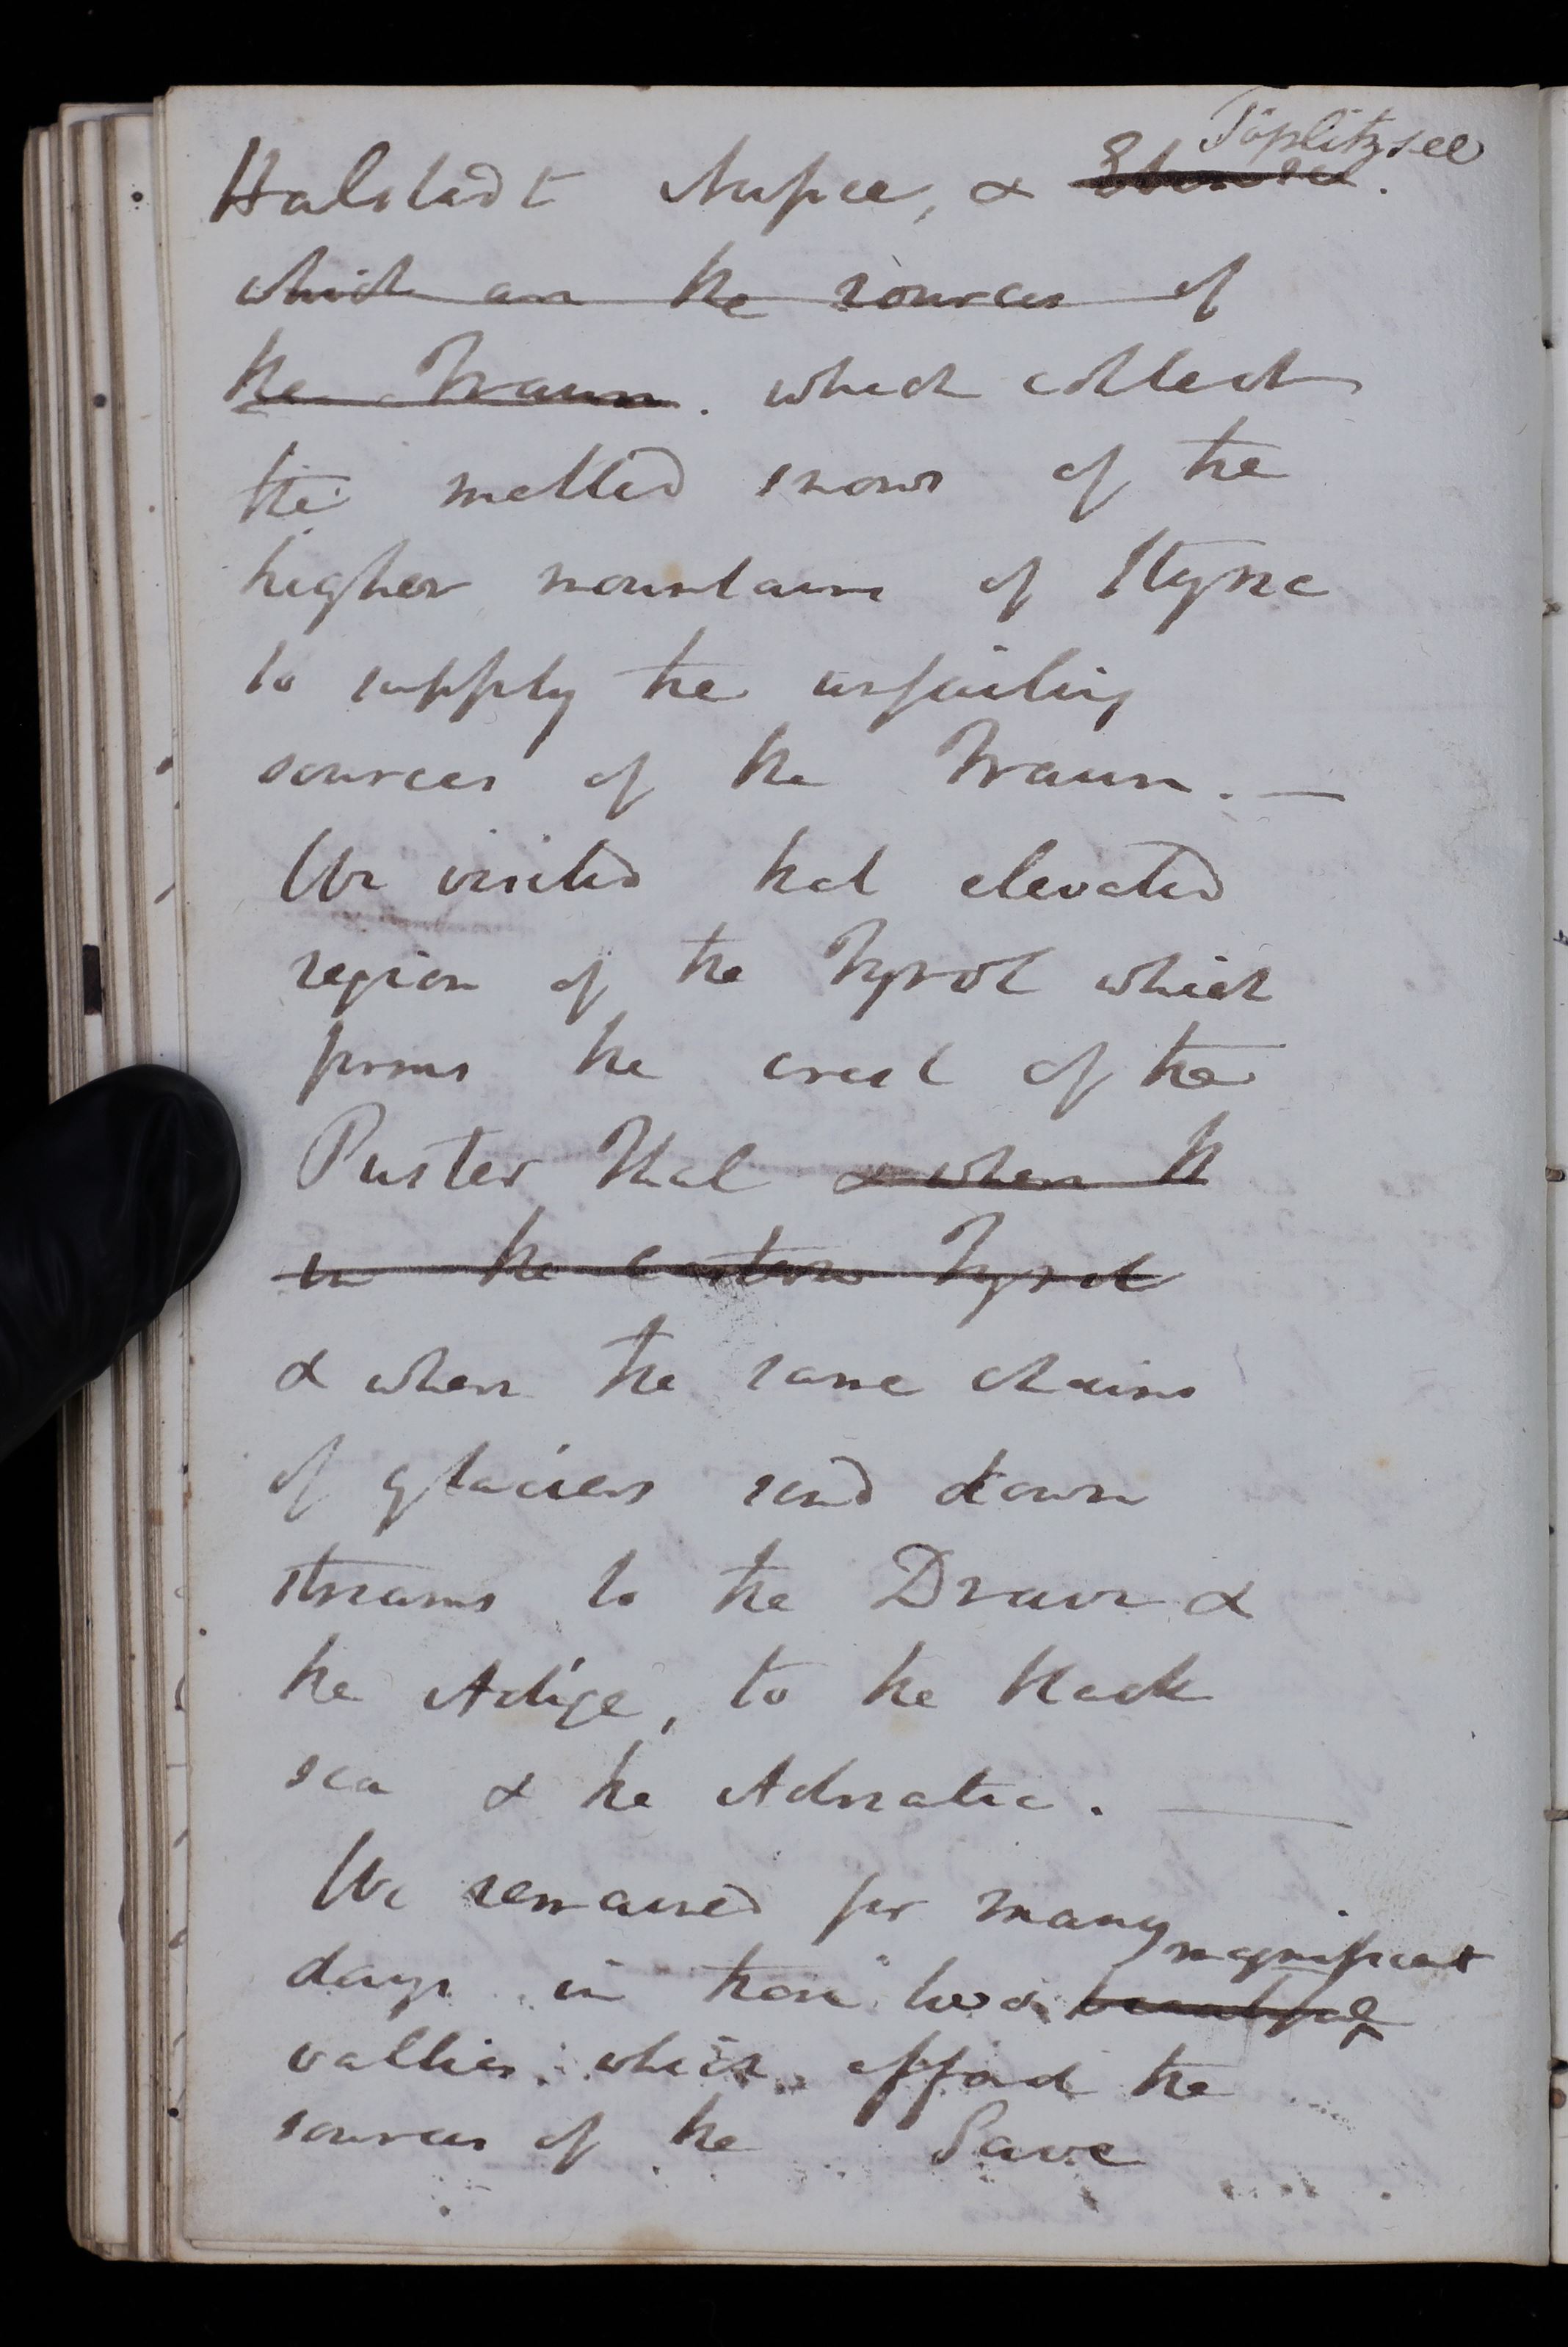 Halstadt Aussee, & Ebensee Töplitzsee.
which are the sources of
the Traun. which collect
the melted snows of the
higher mountains of Styria
to supply the unfailing
sources of the Traun. —
We visited that elevated
region of the Tyrol which
forms the crest of the
Puster Thal & where th
in the eastern Tyrol
& where the same chains
of glaciers send down
streams to the Drave &
the Adige, to the black
sea & the Adriatic. —
We remained for many
days in those two beautiful magnificent
vallies which afford the
sources of the Save